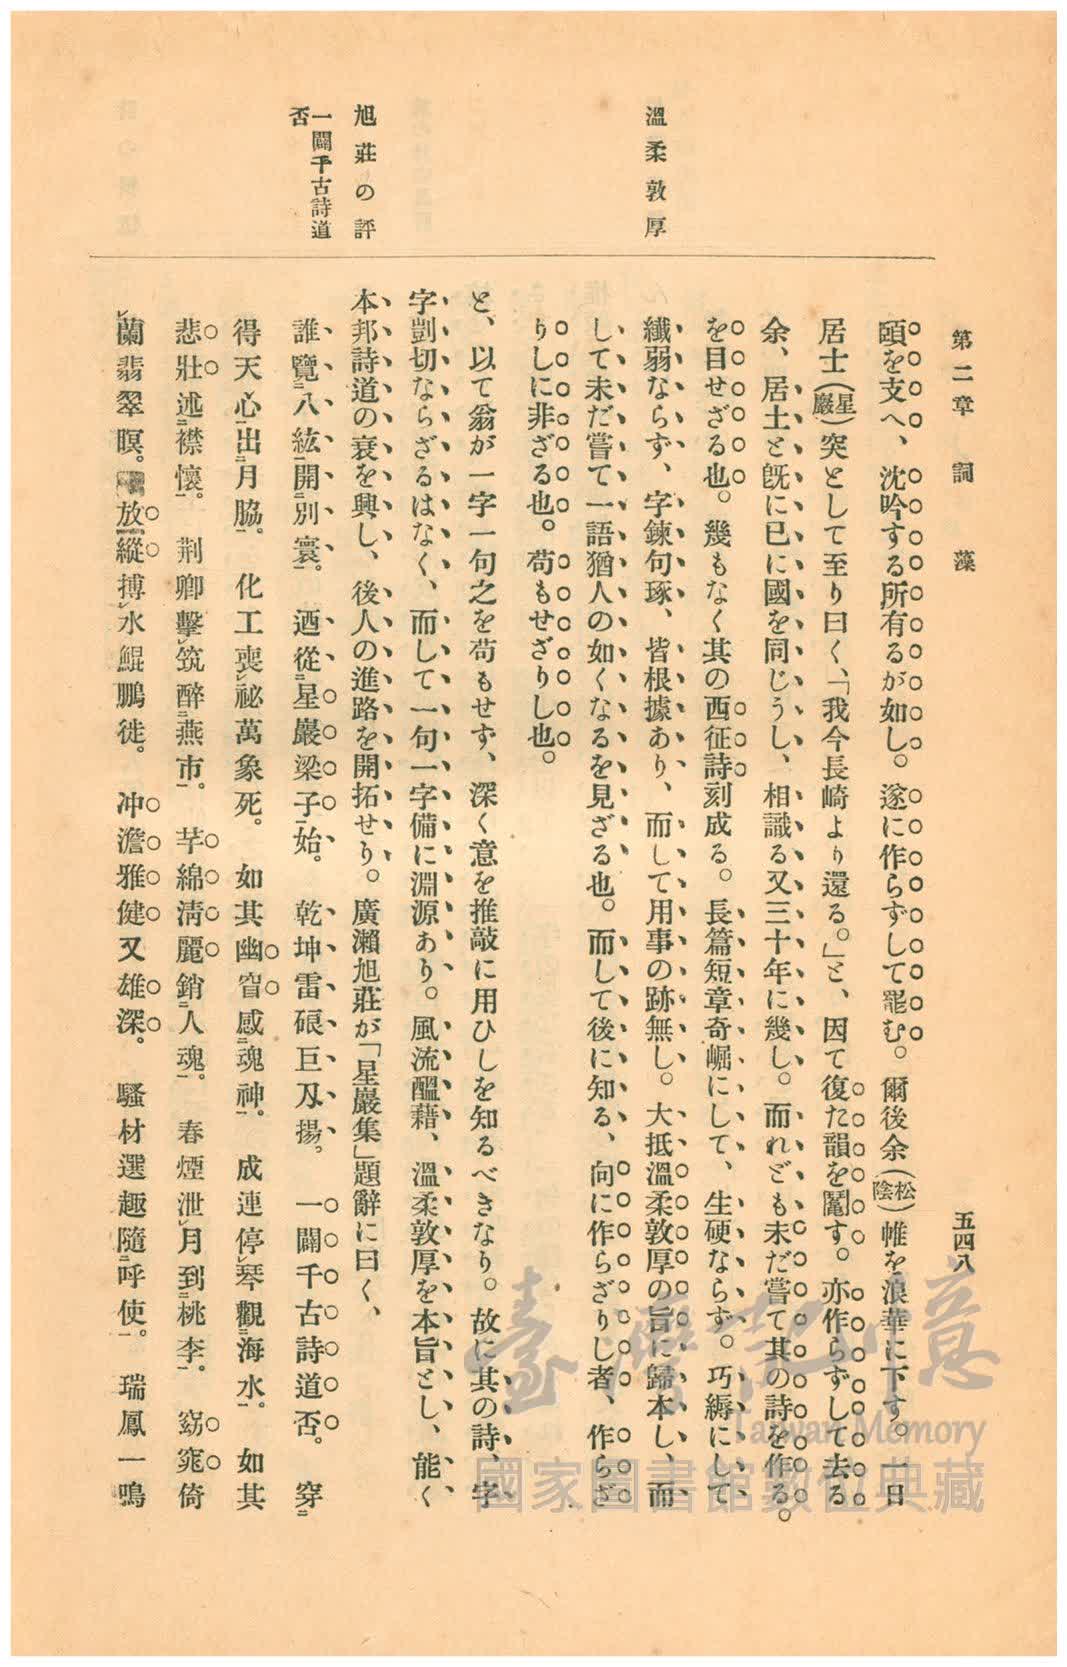 第二章 詞藻 五四八
頤を支へ、沈吟する所有るが如し。遂に作らずして罷む。爾後余(松陰)帷を浪華に下す。一日
居士(星巖)突として至り曰く、「我今長崎より還る。」と、因て復た韻を鬮す。亦作らずして去る
余、居士と旣に已に國を同じうし、相識る又三十年に幾し。而れども未だ嘗て其の詩を作る。
を目せざる也。幾もなく其の西征詩刻成る。長篇短章奇崛にして、生硬ならず。巧縟にして
纖弱ならず、字鍊句琢、皆根據あり、而して用事の跡無し。大抵溫柔敦厚の旨に歸本し、而
して未だ嘗て一語猶人の如くなるを見ざる也。而して後に知る、向に作らざりし者、作らざ
りしに非ざる也。苟もせざりし也。
と、以て翁が一字一句之を苟もせず、深く意を推敲に用ひしを知るべきなり。故に其の詩、字
字剴切ならざるはなく、而して一句一字備に淵源あり。風流醞藉、溫柔敦厚を本旨とし、能く
本邦詩道の衰を興し、後人の進路を開拓せり。廣瀨旭莊が「星巖集」題辭に曰く、
誰覽二八紘一開二別寰一。迺從二星巖梁子一始。乾坤雷硠巨刄揚。一闢千古詩道否。穿二
得天心一出二月脇一。化工喪レ祕萬象死。如其幽窅感二魂神一。成連停レ琴觀二海水一。如其
悲壯述二襟懷一。荆卿擊レ筑醉二燕市一。芊綿淸麗銷二人魂一。春煙泄レ月到二桃李一。窈窕倚
レ蘭翡翠暝。放縱搏レ水鯤鵬徙。冲澹雅健又雄深。騷材選趣隨二呼使一。瑞鳳一鳴
溫柔敦厚
旭莊の評
一闢千古詩道
否
臺灣記憶
Taiwan Memory
國家圖書館數位典藏